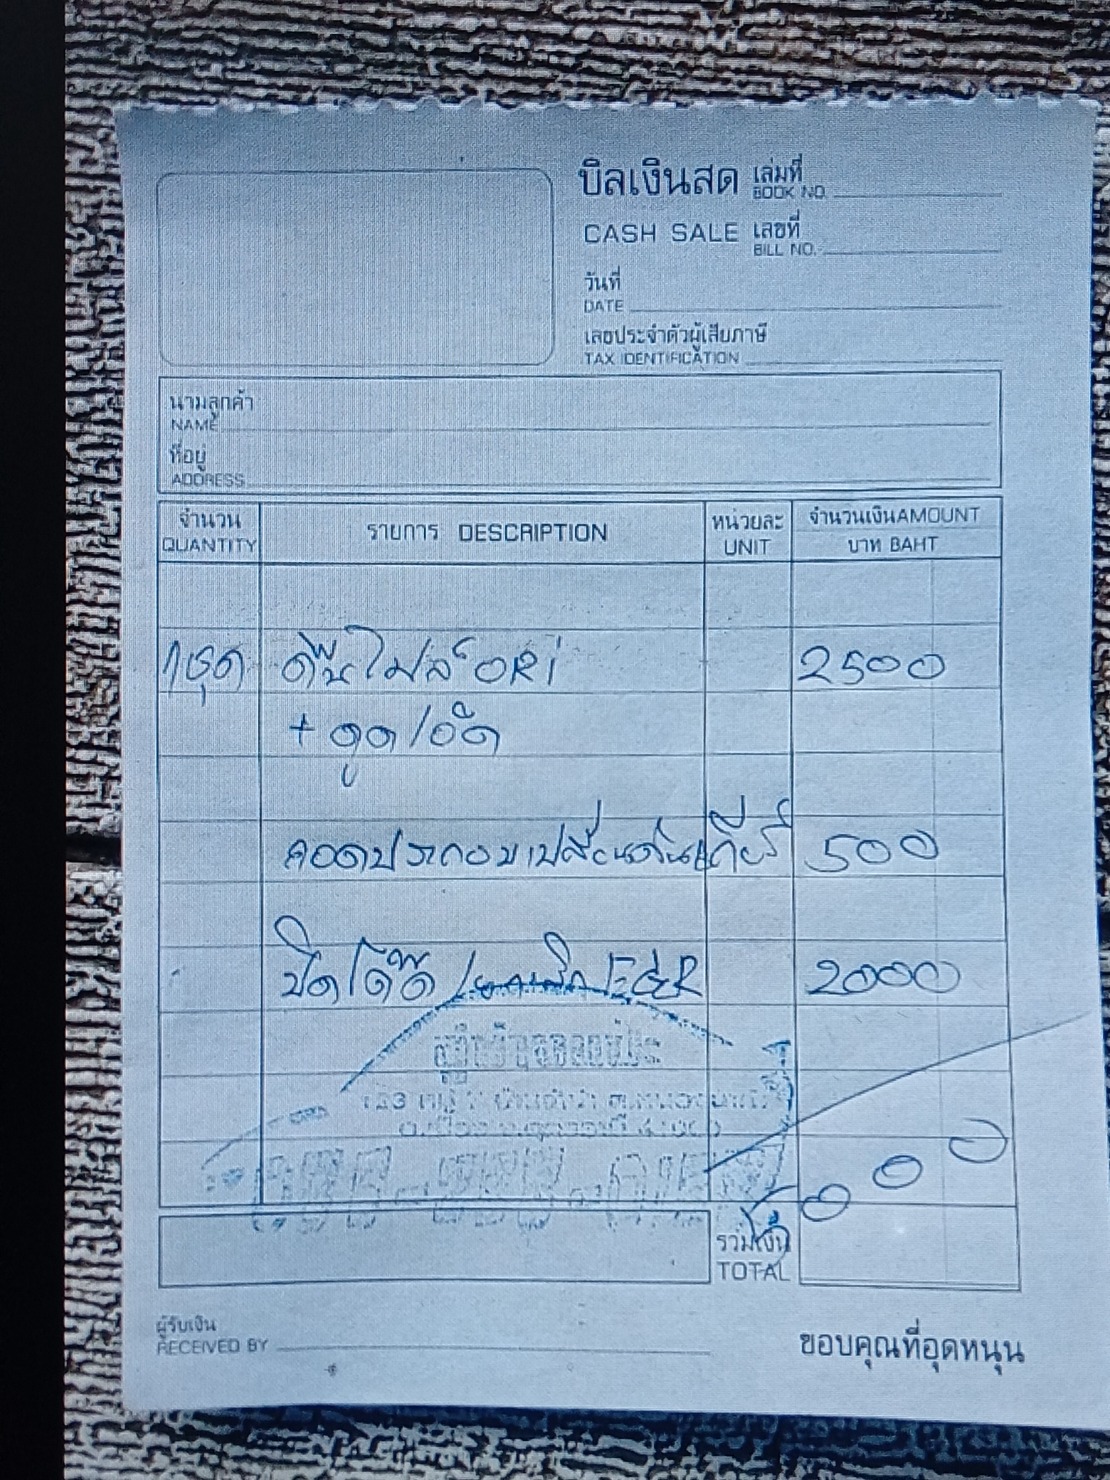 บิลเงินสด เล่มที่
BOOK NO.
CASH SALE เลขที่
BILL NO.
วันที่
DATE
เลขประจำตัวผู้เสียภาษี
TAX IDENTIFICATION
นามลูกค้า
NAME
ที่อยู่
ADDRESS
จำนวน รายการ DESCRIPTION หน่วยละ จำนวนเงินAMOUNT
QUANTITY UNIT บาท BAHT
1ชุด ORi 2500
+ ดูด/อัด
ถอดประกอบเปลี่ยนคันเกียร์ 500
ปิดโด๊ด/ยกเลิก EGR 2000
5000
รวมเงิน
TOTAL
ผู้รับเงิน
RECEIVED BY
ขอบคุณที่อุดหนุน